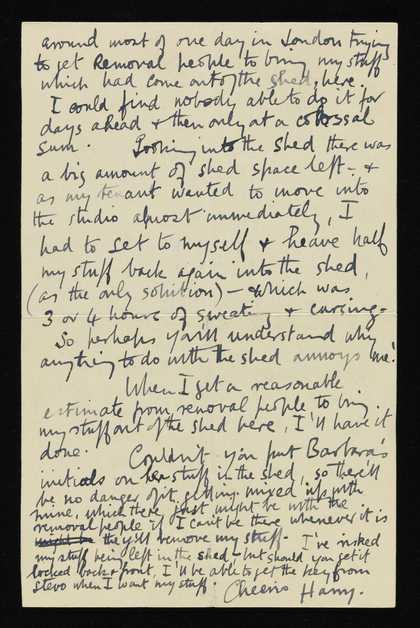 around most of one day in London trying
to get Removal people to bring my stuff
which had come out of the shed, here.
I could find nobody able to do it for
days ahead & then only at a colossal
sum. Looking into the shed there was
a big amount of shed space left - &
as my tenant wanted to move into
the studio almost immediately, I
had to set to myself & heave half
my stuff back again into the shed,
(as the only solution) - & which was
3 or 4 hours of sweating & cursing.
So perhaps you'll understand why
anything to do with the shed annoys me!
When I get a reasonable
estimate from removal people to bring
my stuff out of the shed here, I'll have it
done. Couldn't you put Barbara's
initials on her stuff in the shed, so there'll
be no danger of it getting mixed up with
mine, which there just might be with the
removal people if I can't be there whenever it is
they'll remove my stuff. I've risked
my stuff being left in the shed - but should you get it
locked back & front, I'll be able to get the key from
Stevo when I want my stuff. Cheerio Harry.